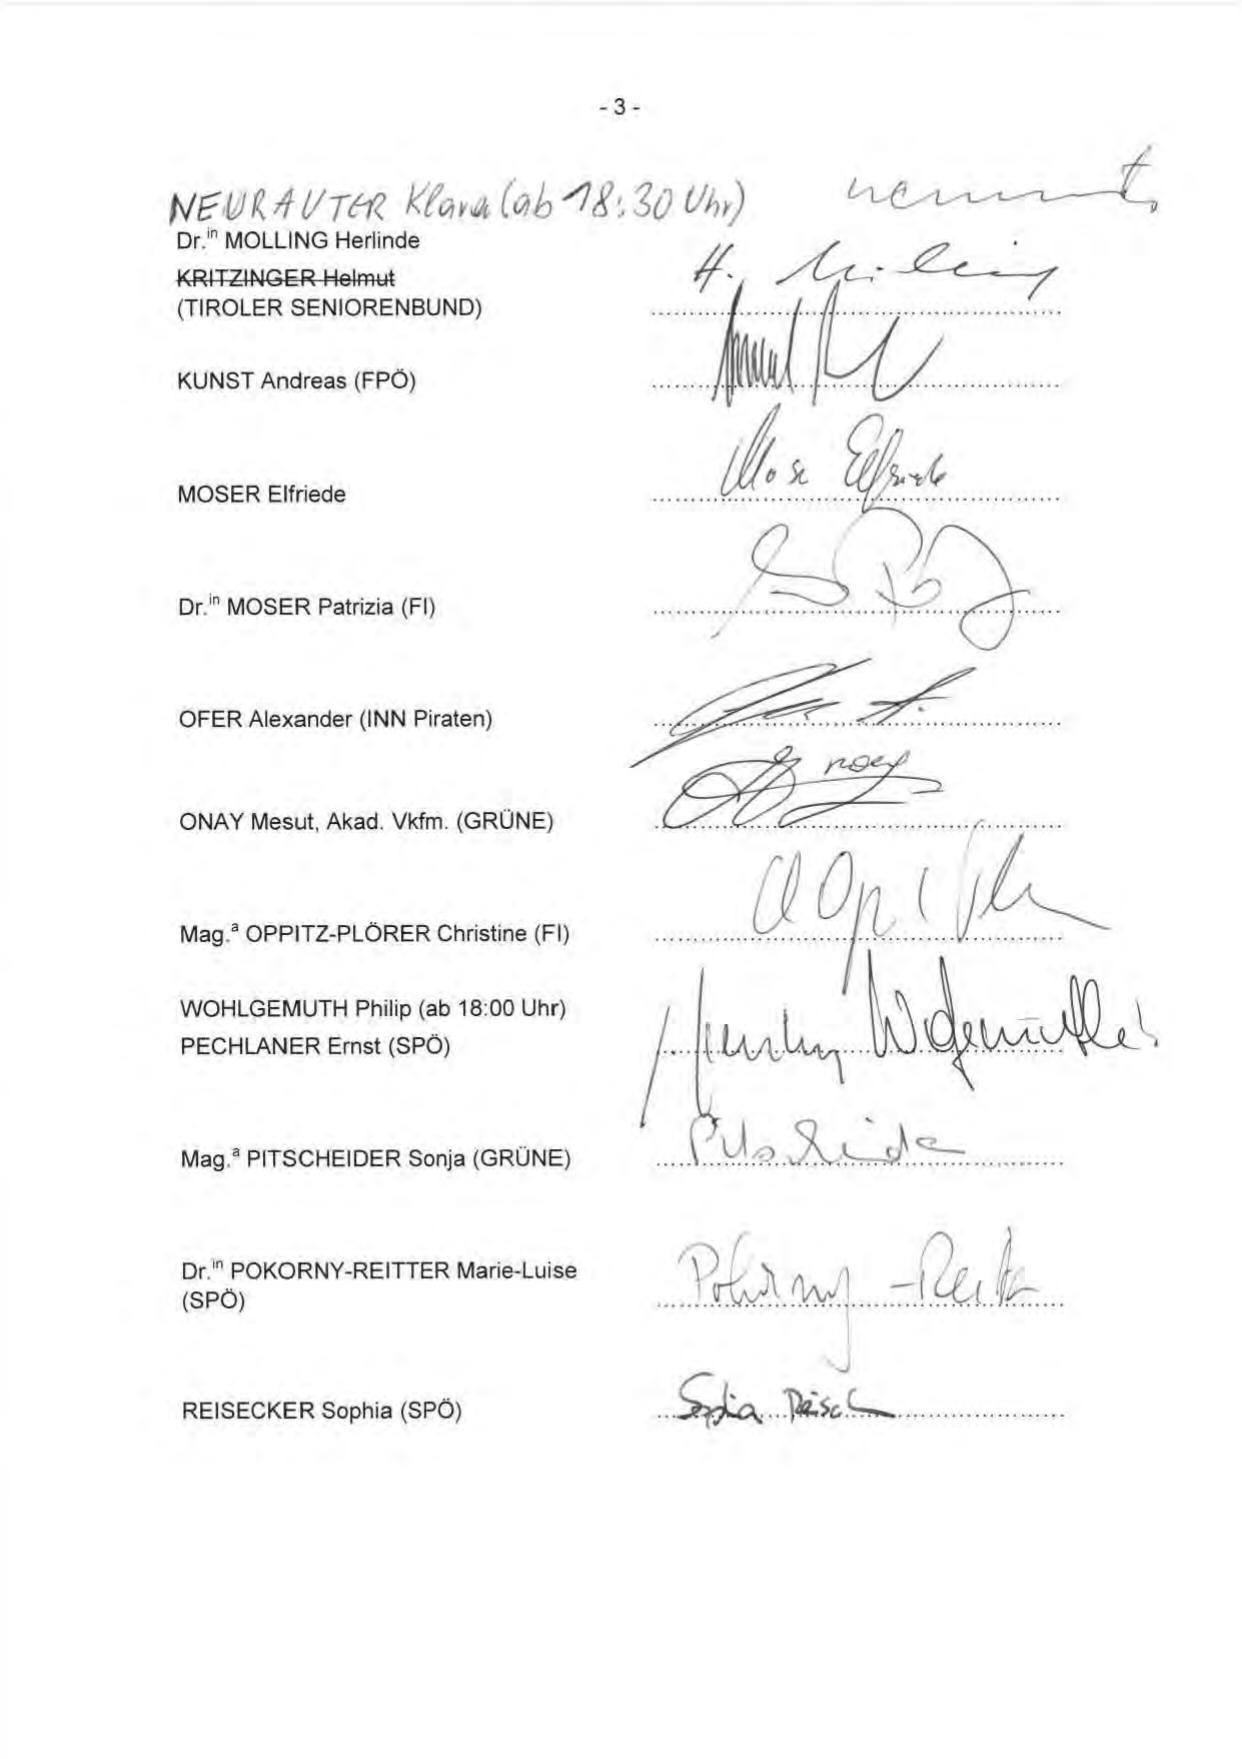 - 3 -
NEURAUTER Klara (ab 18:30 Uhr)
Dr.in MOLLING Herlinde
H.
KRITZINGER Helmut
(TIROLER SENIORENBUND)
KUNST Andreas (FPÖ)
MOSER Elfriede
Moser Elfriede
Dr.in MOSER Patrizia (FI)
OFER Alexander (INN Piraten)
ONAY Mesut, Akad. Vkfm. (GRÜNE)
Mag.a OPPITZ-PLÖRER Christine (FI)
WOHLGEMUTH Philip (ab 18:00 Uhr)
PECHLANER Ernst (SPÖ)
Mag.a PITSCHEIDER Sonja (GRÜNE)
Pitscheider
Dr.in POKORNY-REITTER Marie-Luise
(SPÖ)
Pokorny-Reitter
REISECKER Sophia (SPÖ)
Sophia